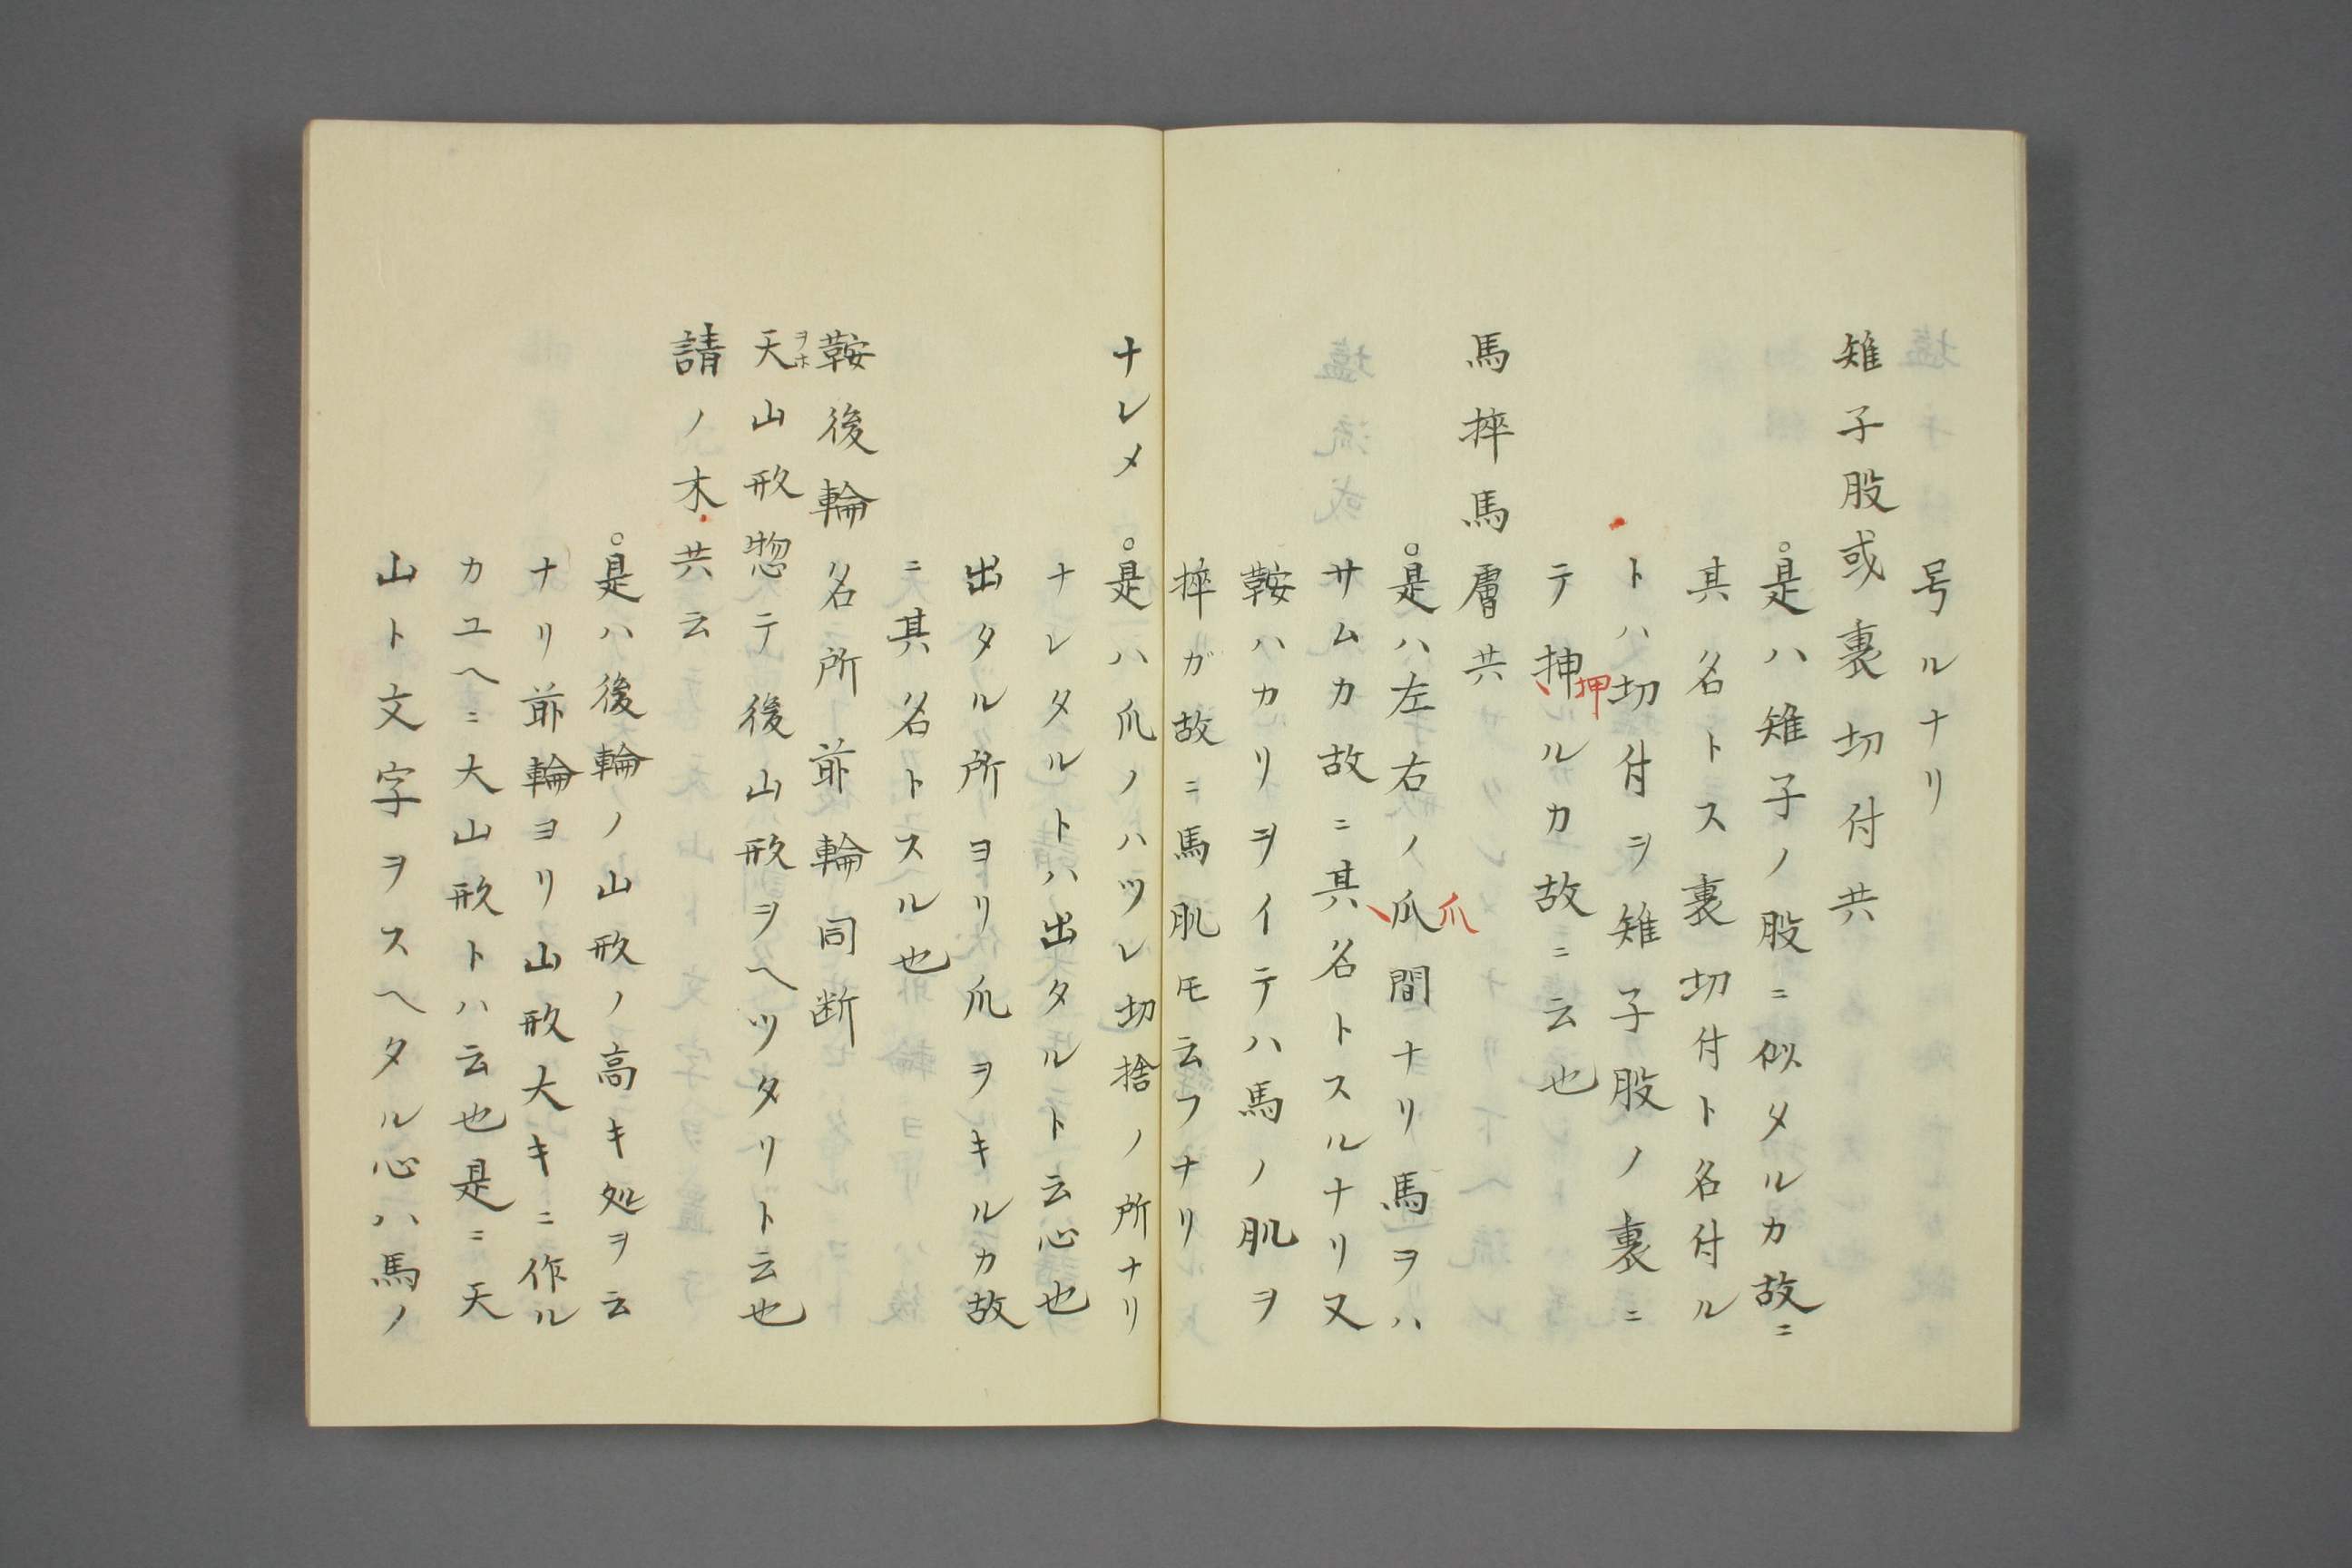 号ルナリ
雉子股或裏切付共
○是ハ雉子ノ股ニ似タルカ故ニ
其名トス裏切付ト名付ル
トハ切付ヲ雉子股ノ裏ニ
テ抻ルカ故ニ云也
押
馬捽馬膚共
○是ハ左右ノ瓜間ナリ馬ヲハ
爪
サムカ故ニ其名トスルナリ又
鞍ハカリヲイテハ馬ノ肌ヲ
捽ガ故ニ馬肌モ云フナリ
ナレメ
○是ハ爪ノハツレ切捨ノ所ナリ
ナレタルトハ出タルト云心也
出タル所ヨリ爪ヲキルカ故
ニ其名トスル也
鞍後輪名所前輪同断
天山形惣テ後山形ヲヘツタリト云也
ヲホ
請ノ木共云
○是ハ後輪ノ山形ノ高キ処ヲ云
ナリ前輪ヨリ山形大キニ作ル
カユヘニ大山形トハ云也是ニ天
山ト文字ヲスヘタル心ハ馬ノ